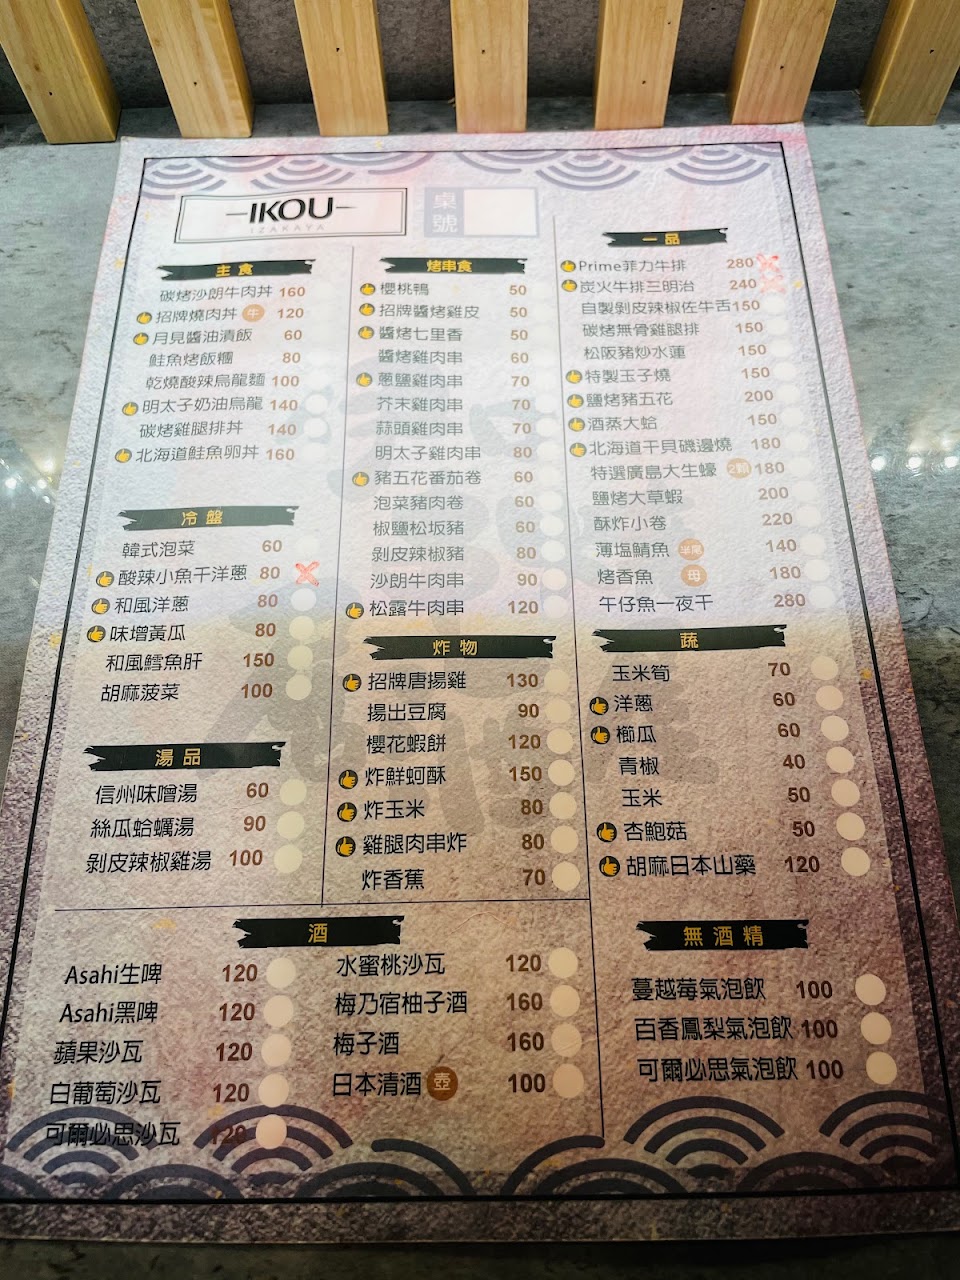 IKOU
IZAKAYA
桌號
主食
碳烤沙朗牛肉丼 160
招牌燒肉丼 牛 120
月見醬油漬飯 60
鮭魚烤飯糰 80
乾燒酸辣烏龍麵 100
明太子奶油烏龍 140
碳烤雞腿排丼 140
北海道鮭魚卵丼 160
冷盤
韓式泡菜 60
酸辣小魚干洋蔥 80
和風洋蔥 80
味增黃瓜 80
和風鱈魚肝 150
胡麻菠菜 100
湯品
信州味噌湯 60
絲瓜蛤蠣湯 90
剝皮辣椒雞湯 100
烤串食
櫻桃鴨 50
招牌醬烤雞皮 50
醬烤七里香 50
醬烤雞肉串 60
蔥鹽雞肉串 70
芥末雞肉串 70
蒜頭雞肉串 70
明太子雞肉串 80
豬五花番茄卷 60
泡菜豬肉卷 60
椒鹽松坂豬 60
剝皮辣椒豬 80
沙朗牛肉串 90
松露牛肉串 120
炸物
招牌唐揚雞 130
揚出豆腐 90
櫻花蝦餅 120
炸鮮蚵酥 150
炸玉米 80
雞腿肉串炸 80
炸香蕉 70
一品
Prime菲力牛排 280
炭火牛排三明治 240
自製剝皮辣椒佐牛舌 150
碳烤無骨雞腿排 150
松阪豬炒水蓮 150
特製玉子燒 150
鹽烤豬五花 200
酒蒸大蛤 150
北海道干貝磯邊燒 180
特選廣島大生蠔 2顆 180
鹽烤大草蝦 200
酥炸小卷 220
薄塩鯖魚 半尾 140
烤香魚 母 180
午仔魚一夜干 280
蔬
玉米筍 70
洋蔥 60
櫛瓜 60
青椒 40
玉米 50
杏鮑菇 50
胡麻日本山藥 120
酒
Asahi生啤 120
Asahi黑啤 120
蘋果沙瓦 120
白葡萄沙瓦 120
可爾必思沙瓦 120
水蜜桃沙瓦 120
梅乃宿柚子酒 160
梅子酒 160
日本清酒 壺 100
無酒精
蔓越莓氣泡飲 100
百香鳳梨氣泡飲 100
可爾必思氣泡飲 100